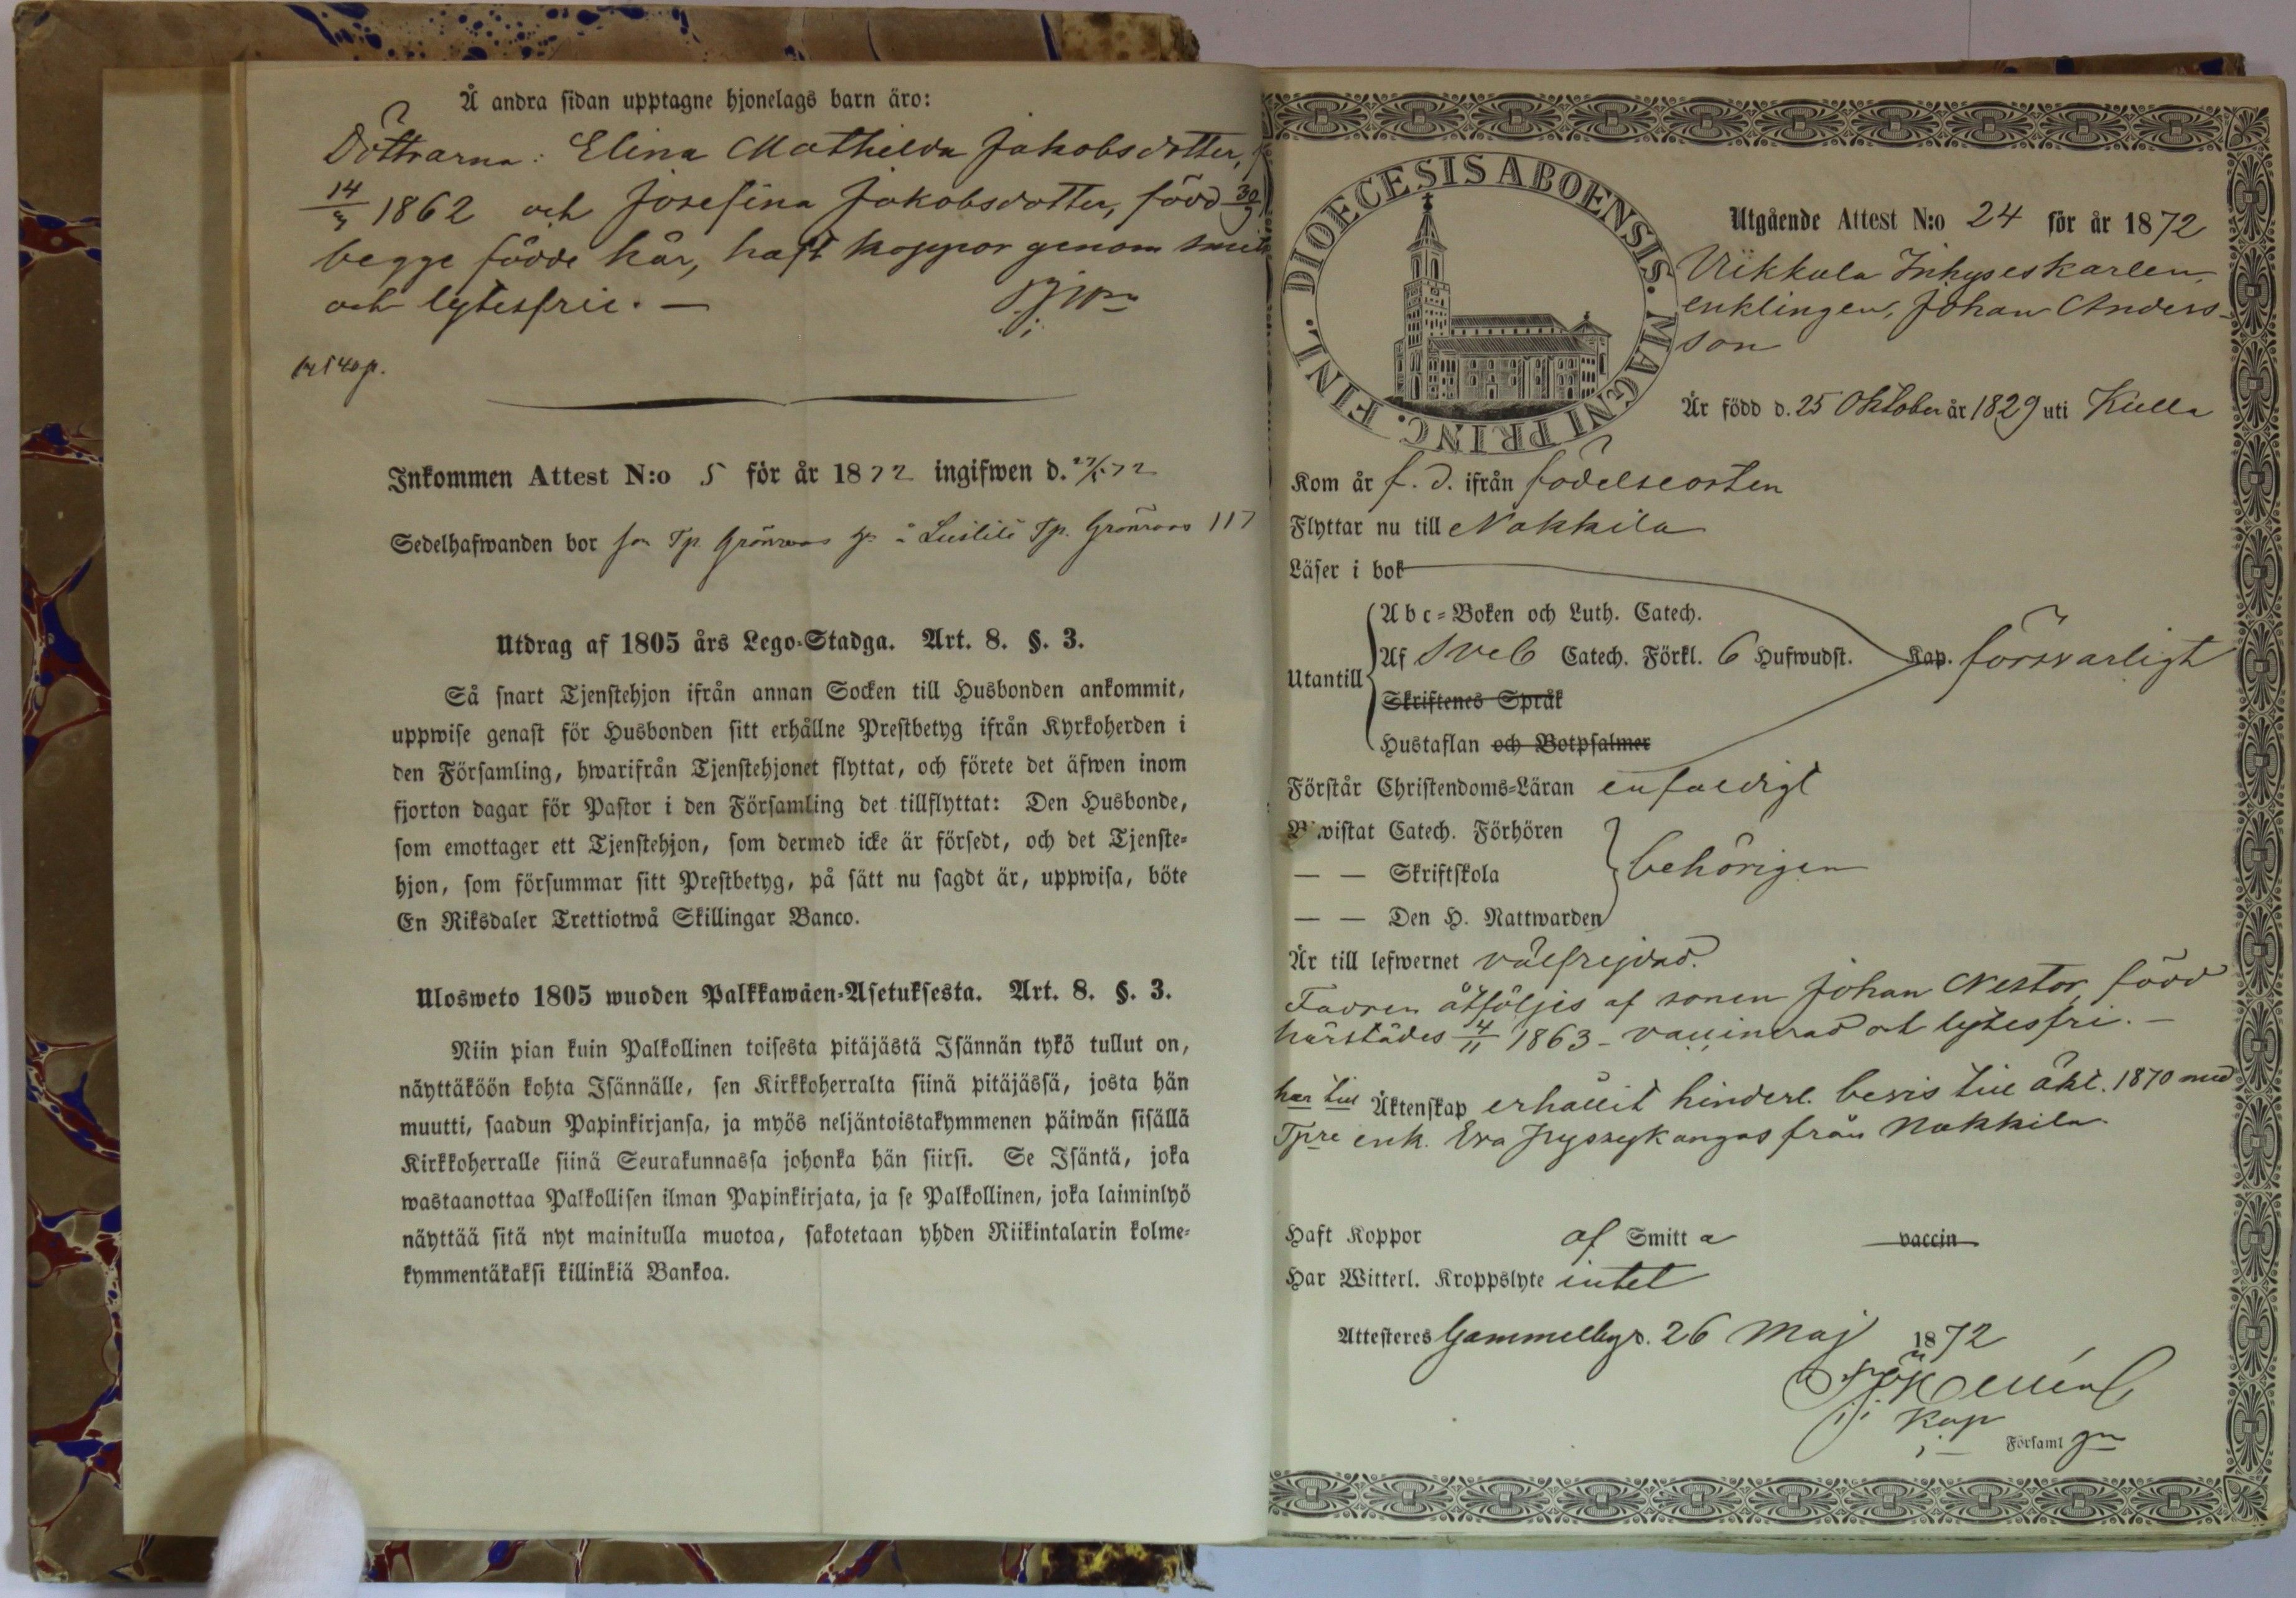 Å andra sidan upptagne hjonelags barn äro:
Döttrarna: Elina Mathilda Jakobsdotter,
14/3 1862 och Josefina Jakobsdotter, född 30/9
begge födde här, haft koppor genom smitt
och lytesfrie. —
Inkommen Attest N:o 5 för år 1872 ingifwen d. 27/5 72
Sedelhafwanden bor Tp. Grönroos Tp. Grönroos 117
Utdrag af 1805 års Lego-Stadga. Art. 8. §. 3.
Så snart Tjenstehjon ifrån annan Socken till Husbonden ankommit,
uppwise genast för Husbonden sitt erhållne Prestbetyg ifrån Kyrkoherden i
den Församling, hwarifrån Tjenstehjonet flyttat, och förete det äfwen inom
fjorton dagar för Pastor i den Församling det tillflyttat: Den Husbonde,
som emottager ett Tjenstehjon, som dermed icke är försedt, och det Tjenste-
hjon, som försummar sitt Prestbetyg, på sätt nu sagdt är, uppwisa, böte
En Riksdaler Trettiotwå Skillingar Banco.
Ulosweto 1805 wuoden Palkkawäen-Asetuksesta. Art. 8. §. 3.
Niin pian kuin Palkollinen toisesta pitäjästä Isännän tykö tullut on,
näyttäköön kohta Isännälle, sen Kirkkoherralta siinä pitäjässä, josta hän
muutti, saadun Papinkirjansa, ja myös neljäntoistakymmenen päiwän sisällä
Kirkkoherralle siinä Seurakunnassa johonka hän siirsi. Se Isäntä, joka
wastaanottaa Palkollisen ilman Papinkirjata, ja se Palkollinen, joka laiminlyö
näyttää sitä nyt mainitulla muotoa, sakotetaan yhden Riikintalarin kolme-
kymmentäkaksi killinkiä Bankoa.
DIOECESIS ABOENSIS. MAGNI PRINC. FINL.
Utgående Attest N:o 24 för år 1872
Viikkala Inhyseskarlen,
enklingen, Johan Anders-
son
Är född d. 25 Oktober år 1829 uti Kiella
Kom år f. d. ifrån födelseorten
Flyttar nu till Nakkila
Läser i bok
Abc-Boken och Luth. Catech.
Utantill Af Sveb Catech. Förkl. 6 Hufwudst. Kap. försvarligt
Skriftenes Språk
Hustaflan och Botpsalmer
Förstår Christendoms-Läran enfaldigt
Bewistat Catech. Förhören
— — Skriftskola behörigen
— — Den H. Nattwarden
Är till lefwernet välfrejdad.
Fadren åtföljes af sonen Johan Nestor, född
härstädes 4/11 1863 - vaccinerad och lytesfri. —
har till Äktenskap erhållit hinderl. bevis till äkt. 1870 med
Tpre enk. Eva från Nakkila
Haft Koppor af Smitta vaccin
Har Witterl. Kroppslyte intet
Attesteres Gammelby d. 26 Maj 1872
Kap
Församl